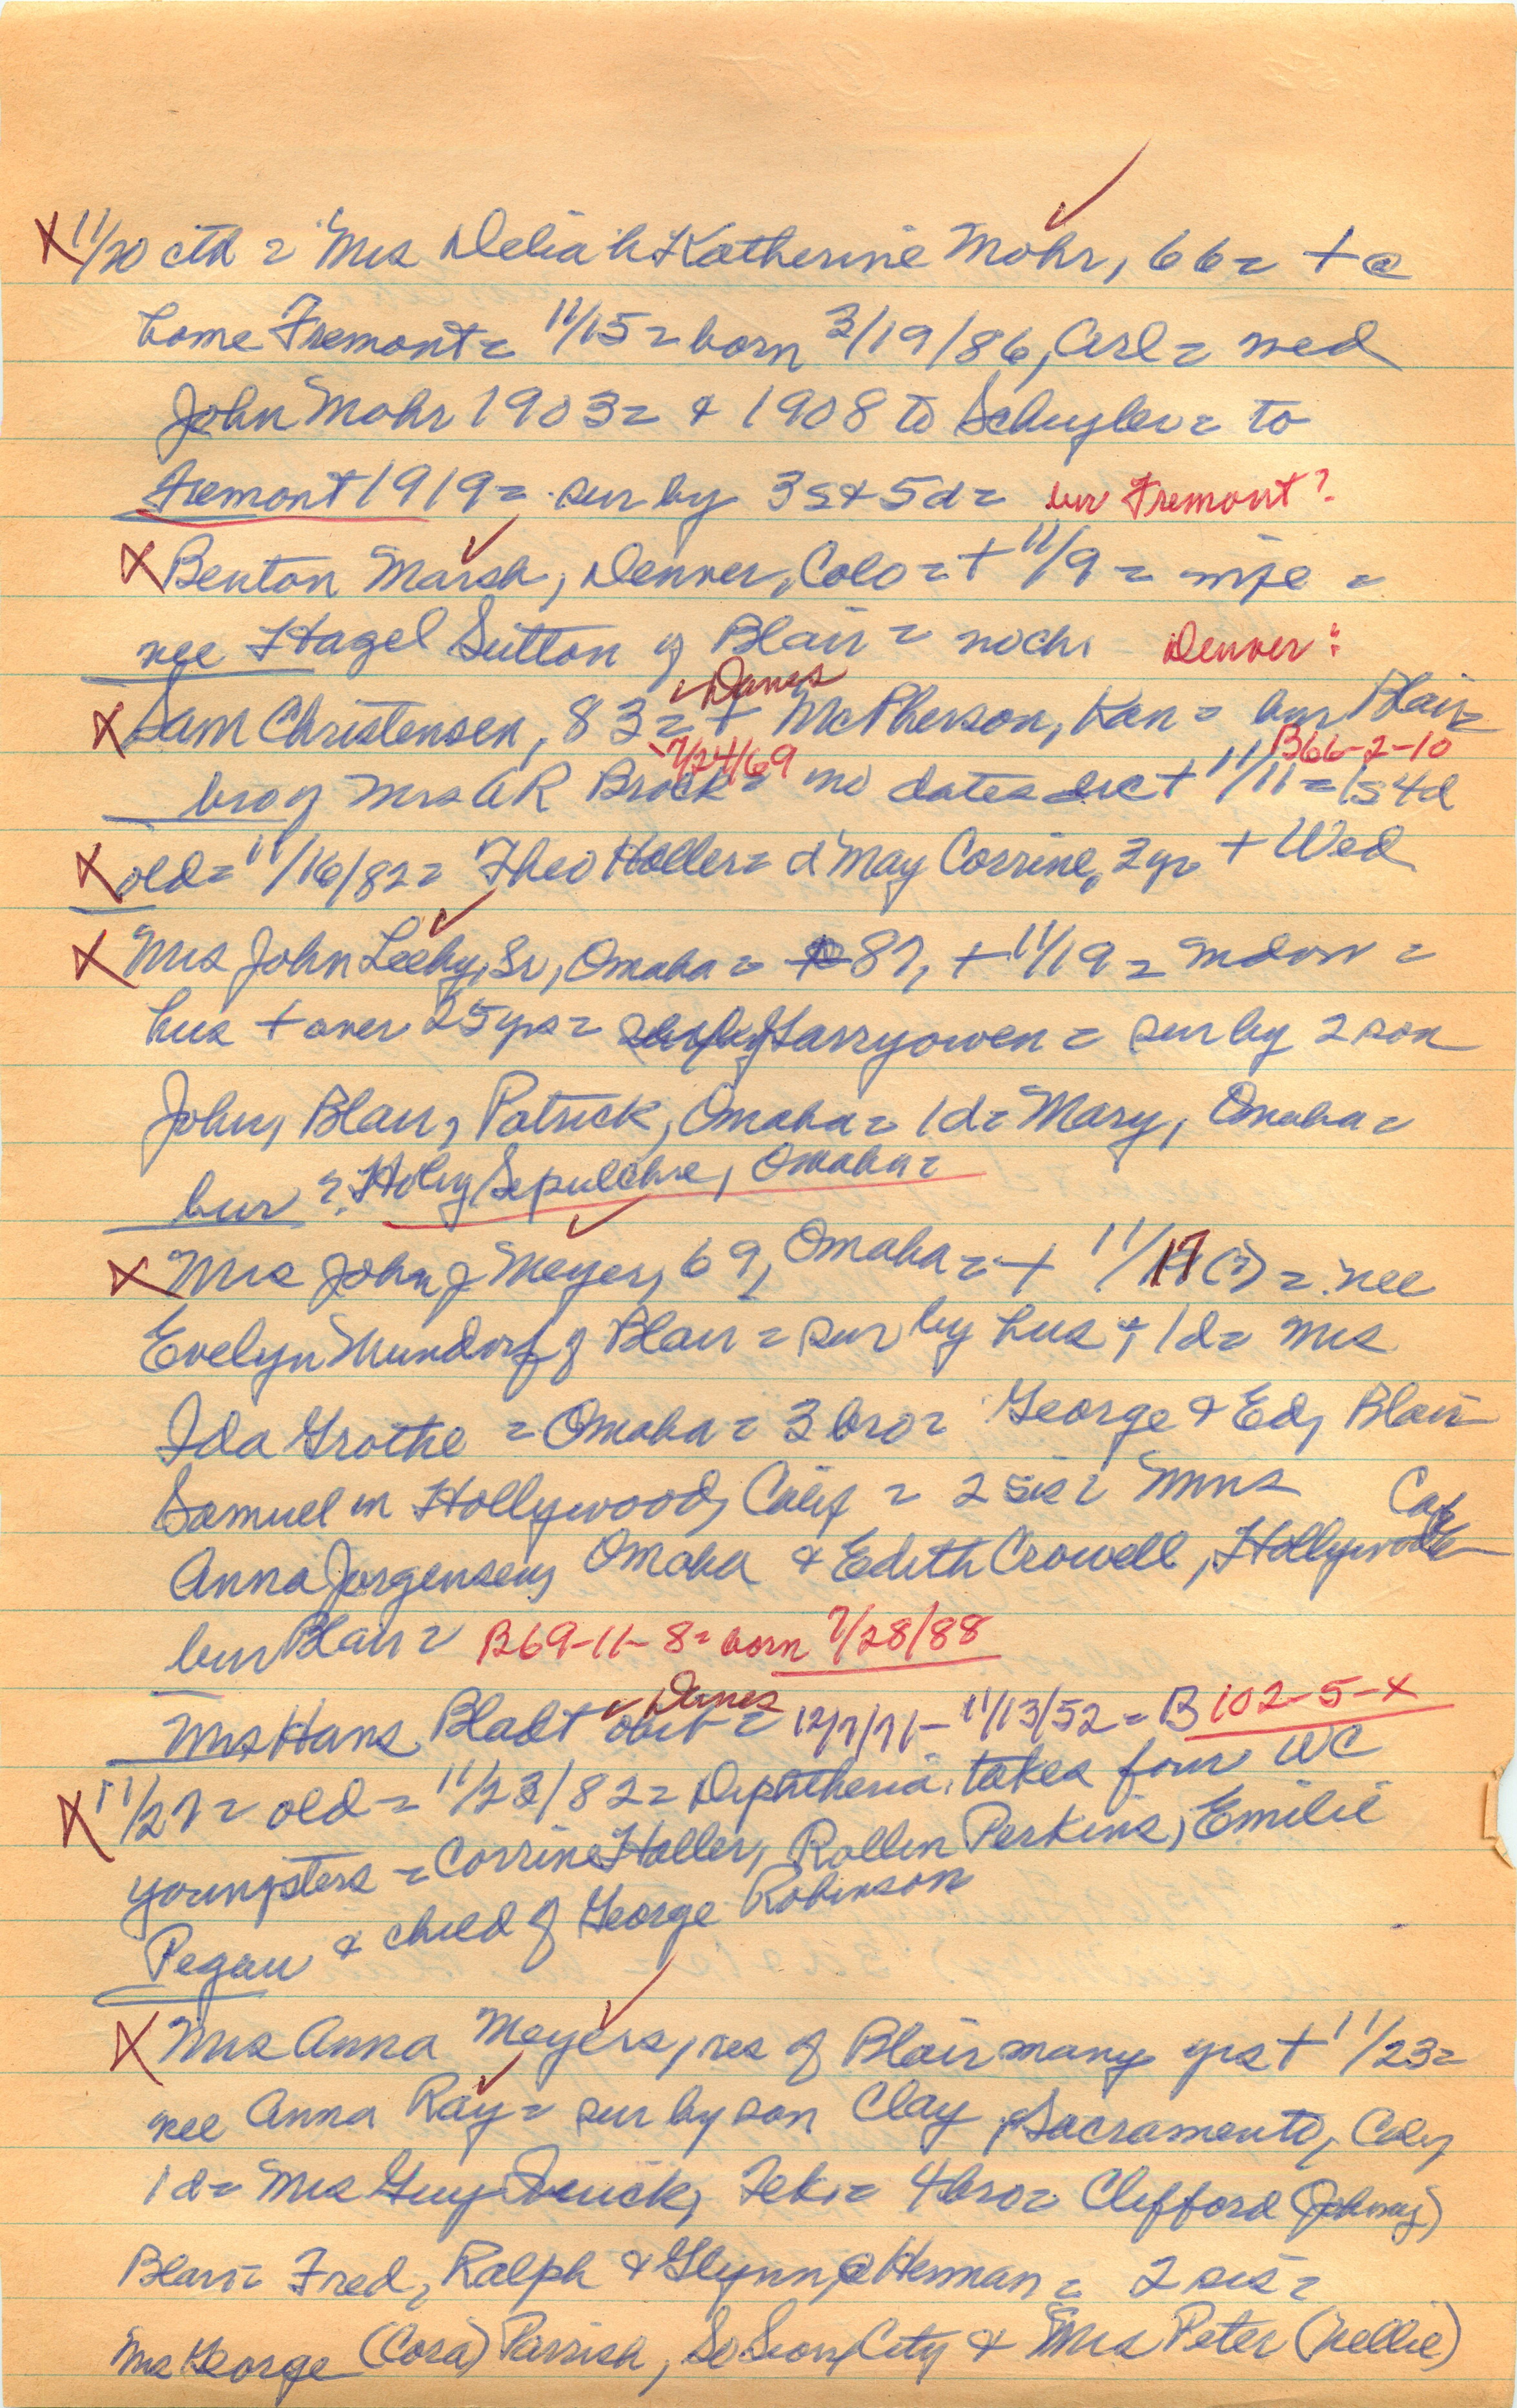 X 11/20 ctd = Mrs Deliah Katherine Mohr, 66 = + @
home Fremont = 11/15 = born 3/19/86, Arl = med
John Mohr 1903 = & 1908 to Schuyler = to
Fremont 1919 = sur by 3s & 5d = bur Fremont?
X Benton Marsh, Denver, Colo = + 11/9 = wife =
nee Hazel Sutton of Blair = no ch. Denver:
Danes
X Sam Christensen, 83 = + McPherson, Kan = bur Blair =
7/24/69 B66-2-10
bro of Mrs AR Brock = no dates + 11/11 = 1s 4d
X old = 11/16/82 = Theo Haller = d May Corrine, 2 yr + Wed
X Mrs John Leehy, Sr, Omaha = 87, + 11/19 = widow =
hus + over 25 yrs = Garryowen = sur by 2 son
John, Blair, Patrick, Omaha = 1d = Mary, Omaha =
bur ? Holy Sepulchre, Omaha =
X Mrs John J Meyer, 69, Omaha = + 11/17 (?) = nee
Evelyn Mundorf of Blair = sur by hus + 1d = Mrs
Ida Grothe = Omaha = 3 bro = George & Ed, Blair
Samuel in Hollywood, Calif = 2 sis = Mmes
Anna Jorgensen, Omaha & Edith Crowell, Hollywood Calif
bur Blair = B69-11-8 = born 7/28/88
Danes
Mrs Hans Bladt obit = 12/7/71 - 11/13/52 = B 102-5-X
X 11/27 = old = 11/23/82 = Diphtheria takes four WC
youngsters = Corrine Haller, Rollin Perkins, Emilie
Pegau & child of George Robinson
X Mrs Anna Meyers, res of Blair many yrs + 11/23 =
nee Anna Ray = sur by son Clay, Sacramento, Calif
1d = Mrs Guy, Tek = 4 bro = Clifford (Johnny)
Blair = Fred, Ralph & Glynn @ Herman = 2 sis =
Mrs George (Cora) Parrish, So Sioux City & Mrs Peter (Nellie)